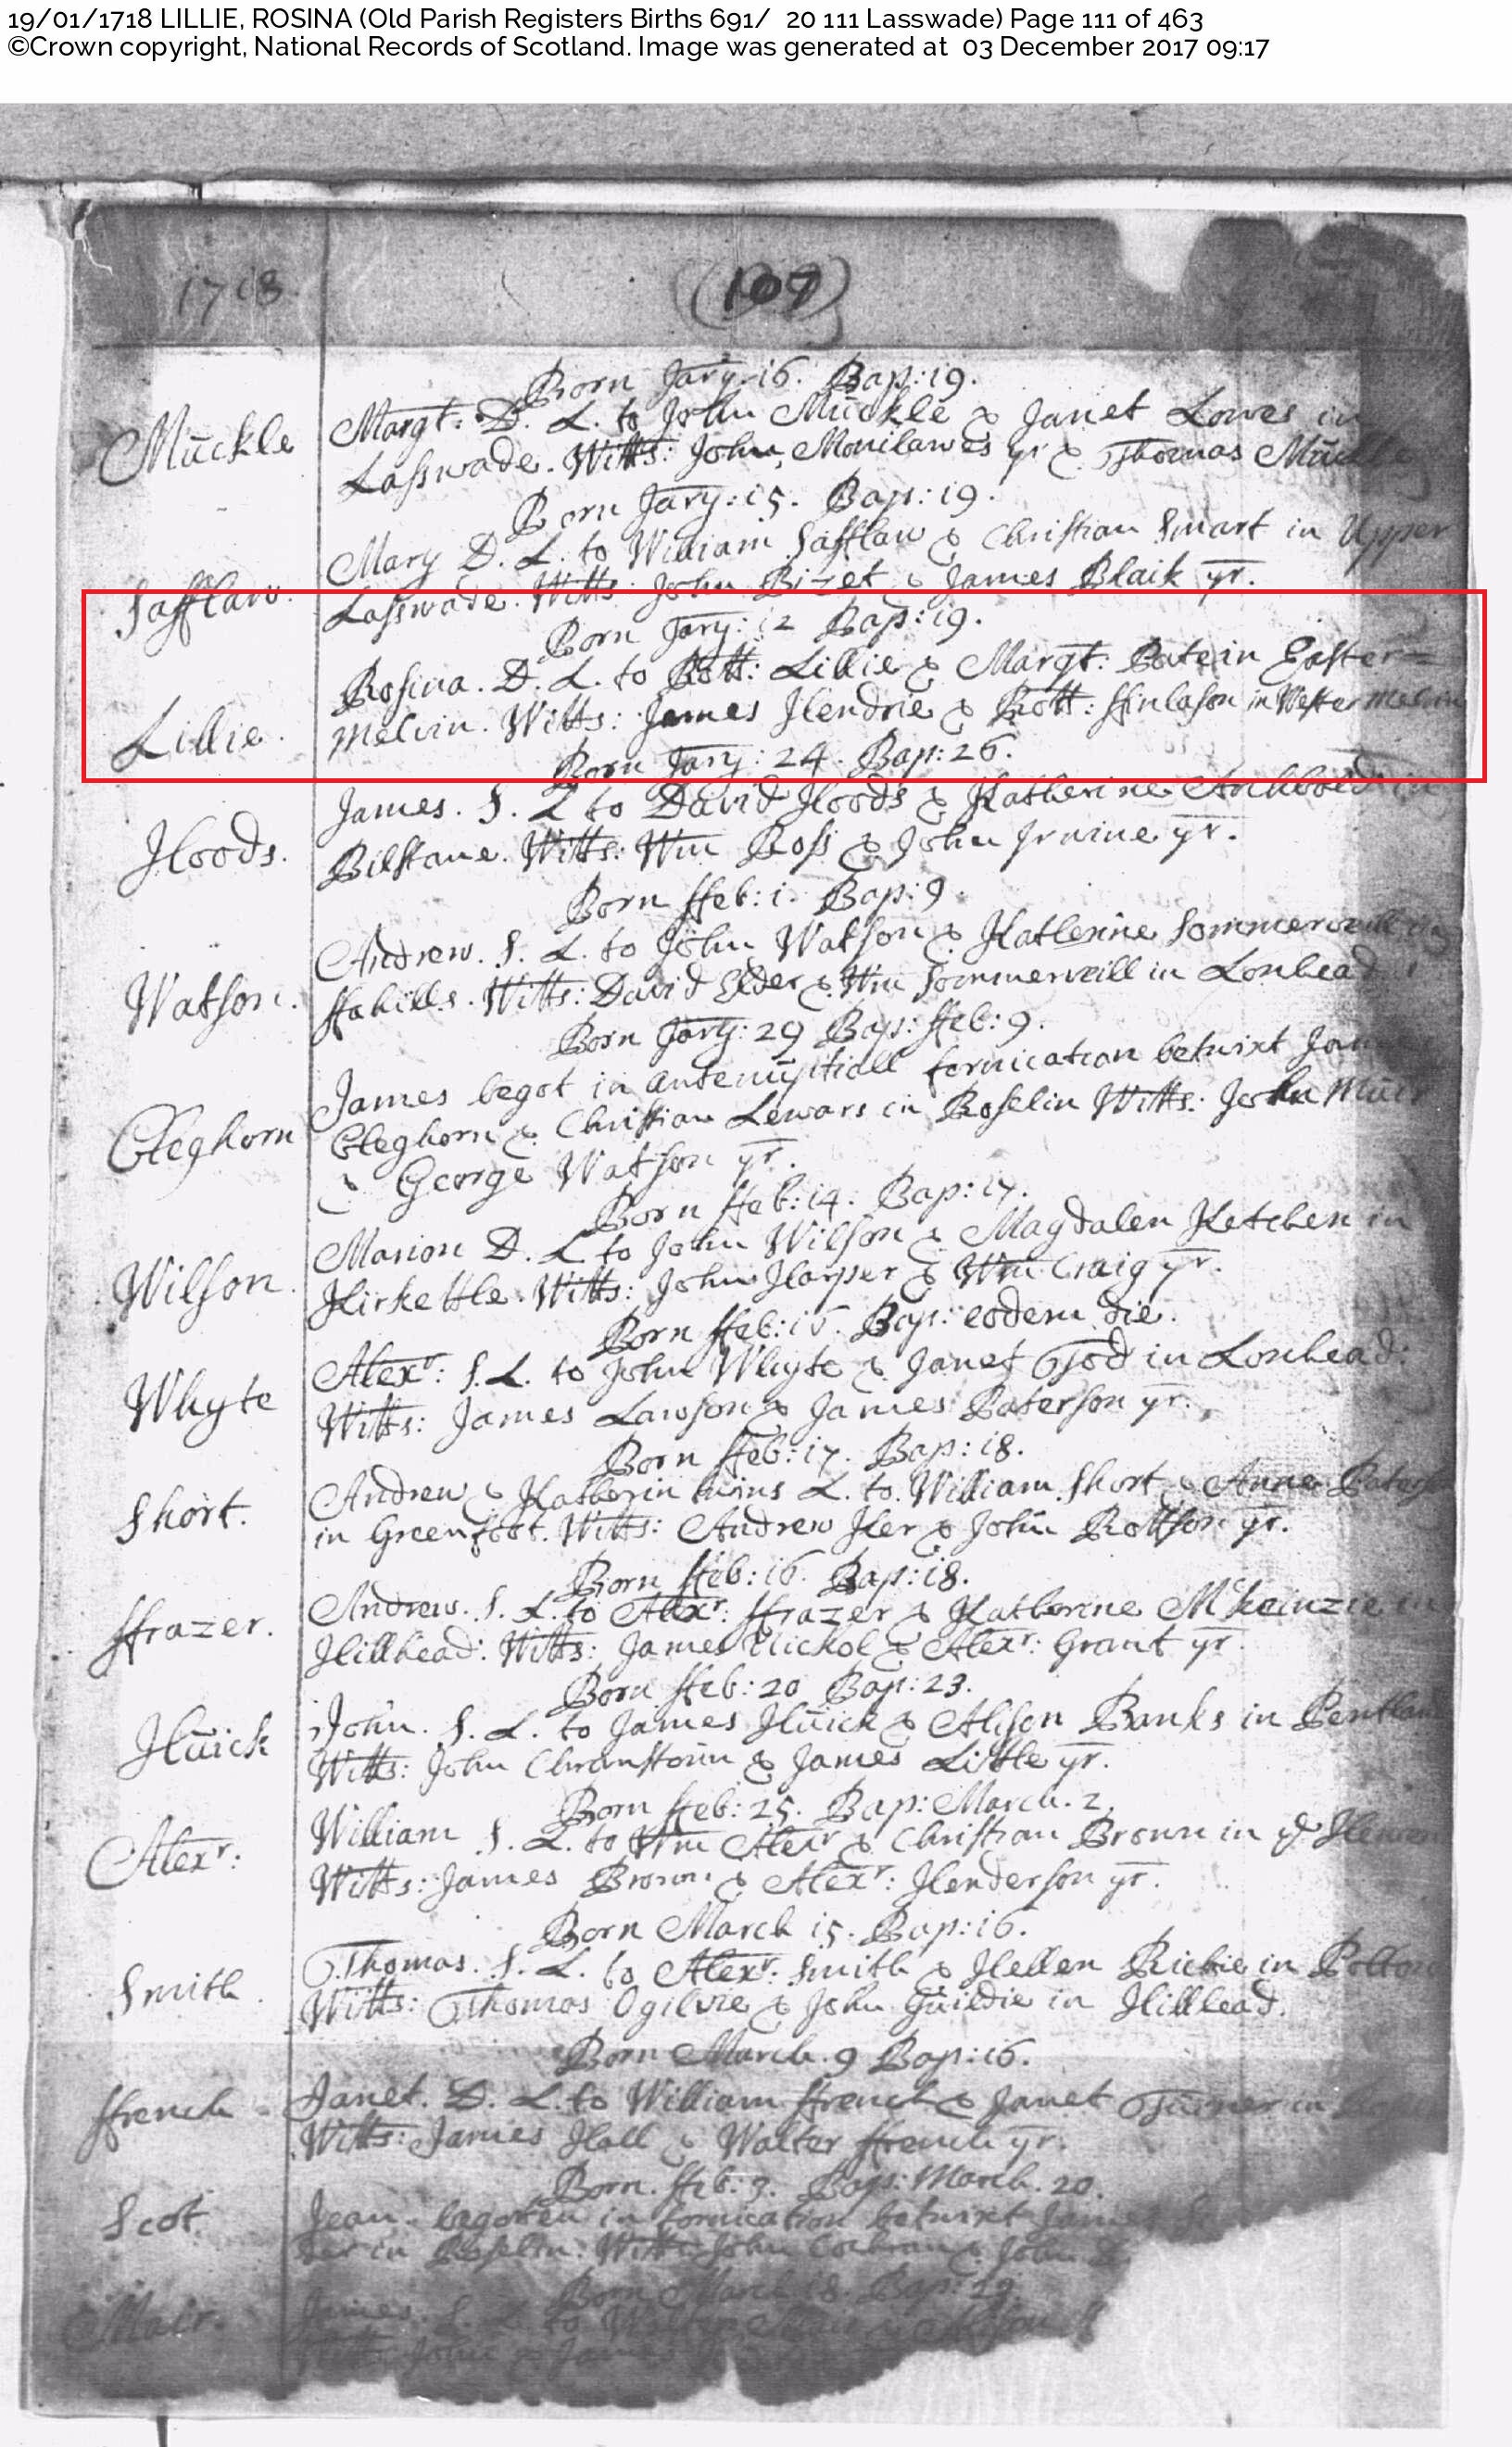 19/01/1718 LILLIE, ROSINA (Old Parish Registers Births 691/ 20 111 Lasswade) Page 111 of 463
©Crown copyright, National Records of Scotland. Image was generated at 03 December 2017 09:17
1718 (107)
Born Jary. 16. Bap: 19.
Mūckle Margt: D. L. to John Mūckle & Janet Lowes in
Lasswade. Witts: John Monilawes yr & Thomas Mūckle
Born Jary: 15. Bap: 19.
Mary D. L. to William Safflaw & Christian Smart in Upper
Safflaw. Lasswade. Witts: John Bizet & James Blaik yr.
Born Jary: 12 Bap: 19.
Rosina. D. L. to Rott: Lillie & Margt: Pate in Easter=
Lillie. Melvin. Witts: James Hendrie & Rott: ffinlason in Wester Melvin
Born Jary: 24. Bap: 26.
James. S. L to David Hoods & Katherine in
Hoods. Bilstane. Witts: Wm Ross & John Irvine yr.
Born ffeb: 1. Bap: 9.
Andrew. S. L. to John Watson & Katherine Sommerveill in
Watson. ffahills. Witts: David Elder & Wm Sommerveill in Lonhead
Born Jary: 29 Bap: ffeb: 9.
James begot in antenūptiall fornication betwixt
Cleghorn Cleghorn & Christian Lewars in Roselin Witts: John Mūir
& George Watson yr.
Born ffeb: 14. Bap: 17.
Marion D. L to John Wilson & Magdalen Ketchen in
Wilson. Kirkettle. Witts: John Harper & Wm Craig yr.
Born ffeb: 16. Bap: eodem die.
Alexr: S. L. to John Whyte & Janet Tod in Lonhead:
Whyte Witts: James Lawson & James Paterson yr.
Born ffeb: 17. Bap: 18.
Andrew & Katherin twins L. to William Short & Anne
Short. in Greenfoot. Witts: Andrew Ker & John Rottson yr.
Born ffeb: 16. Bap: 18.
Andrew. S. L. to Alexr: ffrazer & Katherine McKeinzie in
ffrazer. Hillhead: Witts: James Nickol & Alexr: Grant yr.
Born ffeb: 20 Bap: 23.
John. S. L. to James Hūick & Alison Banks in Pentland
Hūick Witts: John Chranstoūn & James Little yr.
Born ffeb: 25. Bap: March. 2.
William S. L. to Wm Alexr & Christian Brown in
Alexr: Witts: James Brown & Alexr: Henderson yr.
Born March 15. Bap: 16.
Thomas. S. L. to Alexr: Smith & Hellen Richie in Polton
Smith. Witts: Thomas Ogilvie & John Gūildie in Hillhead.
Born March. 9 Bap: 16.
ffrench Janet. D. L. to William ffrench & Janet Tūrner in
Witts: James Hall & Walter ffrench yr.
Born. ffeb: 3. Bap: March. 20.
Scot Jean. begotten in fornication betwixt James
in Roselin. Witts: John Cochran & John
Born March 18. Bap: 19
James. S. L to
Witts: John & James